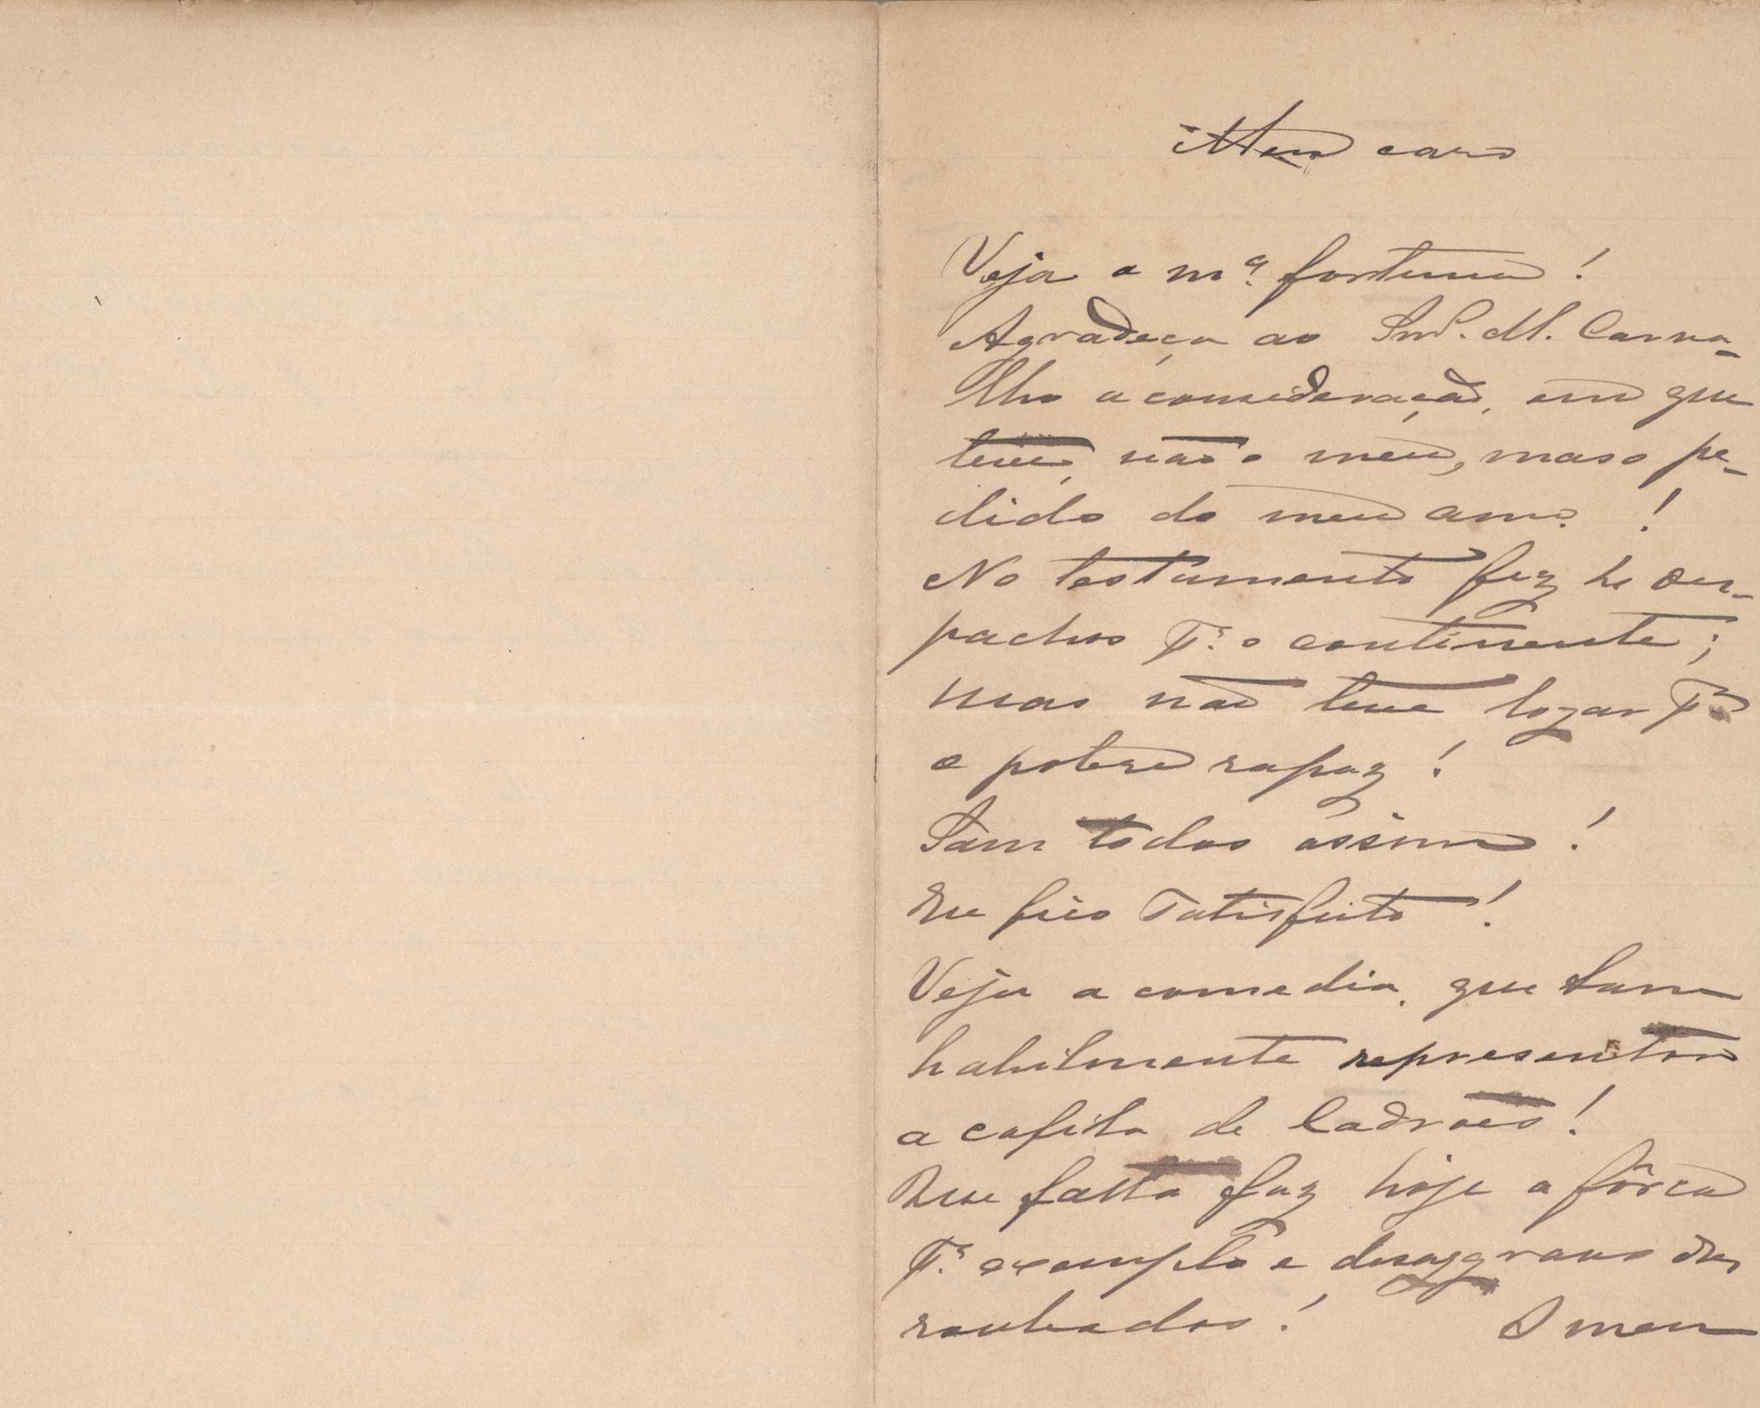 Meu caro
Veja a mª fortuna!
Agradeça ao Snr. M. Carva-
lho a consideração, em que
teve, não o meu, mas o pe-
dido do meu amo. !
No testamento fez des-
pachos pª o continente;
mas não teve logar pª
o pobre rapaz!
Sam todos assim!
Eu fico satisfeito!
Veja a comedia, que tam
habilmente representou
a cafila de ladrões!
Que falta faz hoje a fôrca
pª exemplo e desaggravo dos
roubados! O meu